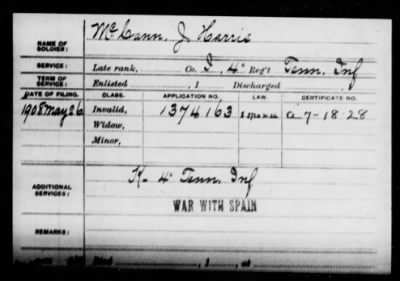 NAME OF SOLDIER: McCann, J. Harris
SERVICE: Late rank, Co. I, 4" Reg't Tenn. Inf
TERM OF SERVICE: Enlisted , 1 Discharged , 1
DATE OF FILING. CLASS. APPLICATION NO. LAW. CERTIFICATE NO.
1908 May 26 Invalid, 1374163 Ca 7-18-28
Widow,
Minor,
ADDITIONAL SERVICES: K- 4" Tenn. Inf
WAR WITH SPAIN
REMARKS:
Died , 1 , at